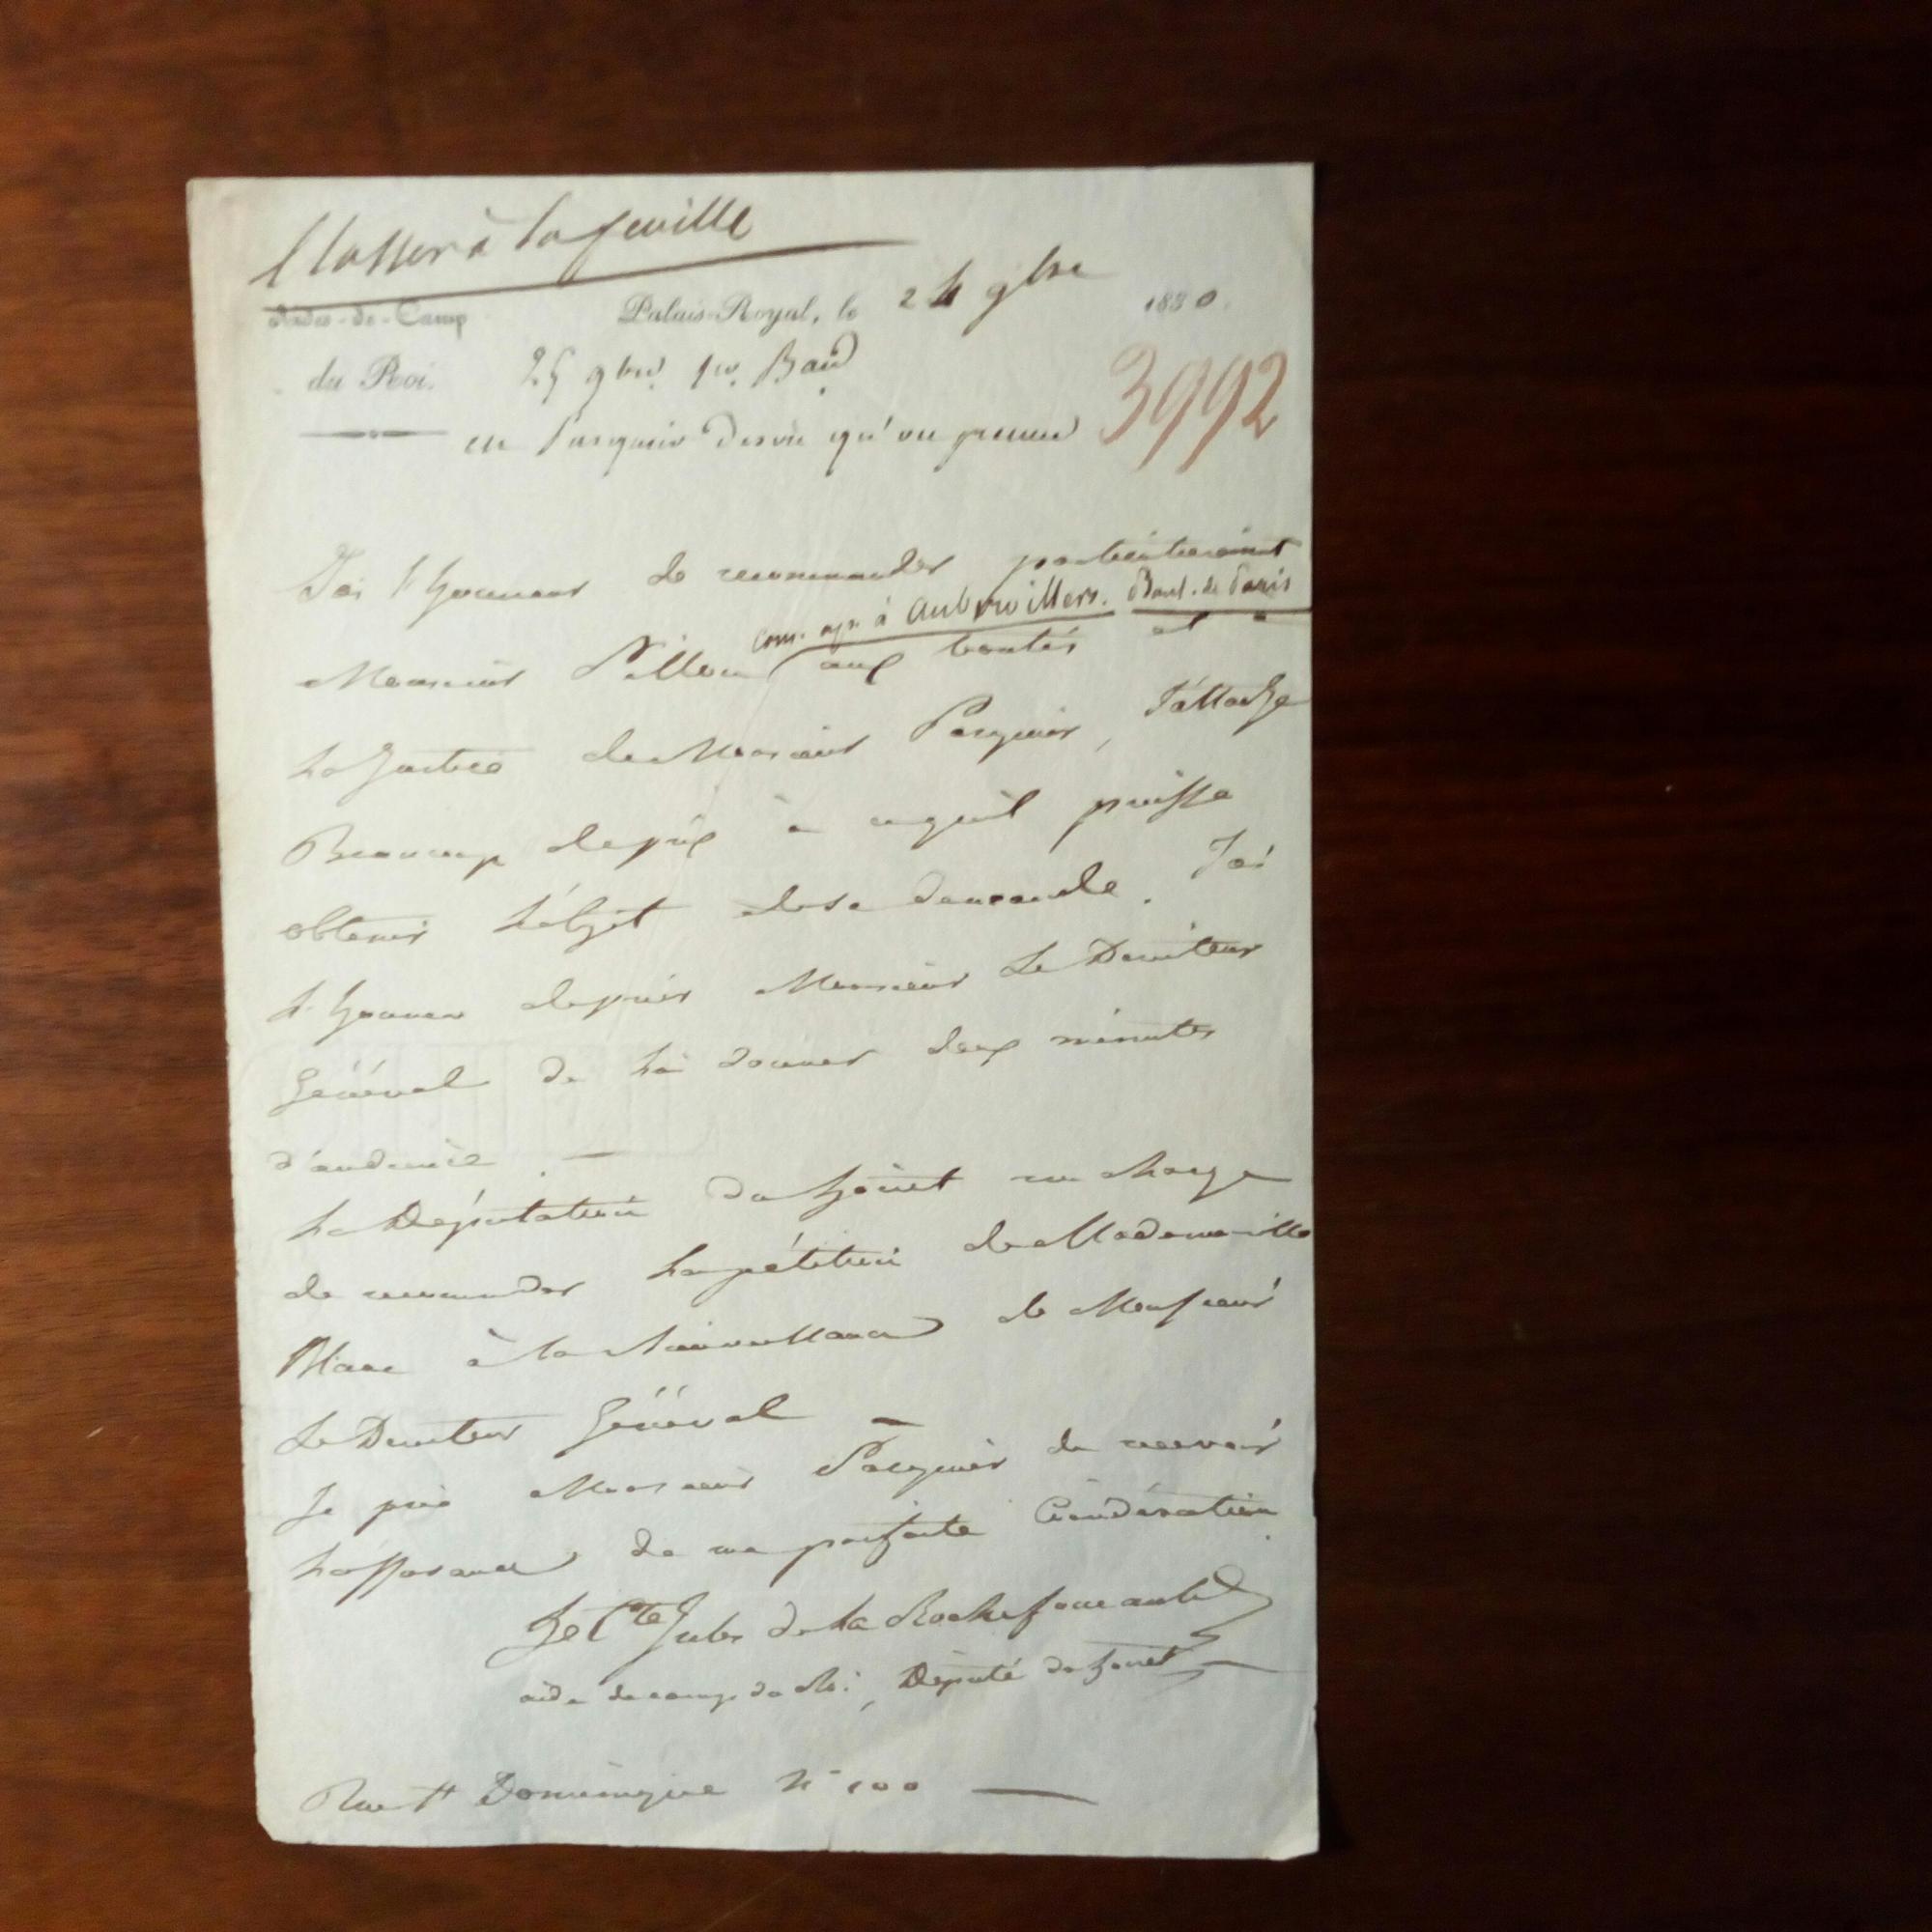 Classer à la feuille
Aides-de-Camp
Palais-Royal, le 24 9bre 1830.
du Roi.
25 9bre
3992
M Pasquier desire qu'on prenne
J'ai l'honneur de recommander particulierement
à Aubervilliers. Banl. de Paris
Monsieur aux bontés et a
La Justice de Monsieur Pasquier, J'attache
Beaucoup de prix à ce qu'il puisse
obtenir L'objet de sa demande. J'ai
L'honneur de prier Monsieur Le Directeur
Général de lui donner deux minutes
d'audience. —
La Députation du Loiret me charge
de recommander La pétition de Mademoiselle
Blanc à la bienveillance de Monsieur
Le Directeur Général —
Je prie Monsieur Pasquier de recevoir
L'assurance de ma parfaite Considération
Le Cte Jules de La Rochefoucauld
aide de camp du Roi, Député du Loiret
Rue St Dominique N° 100 —